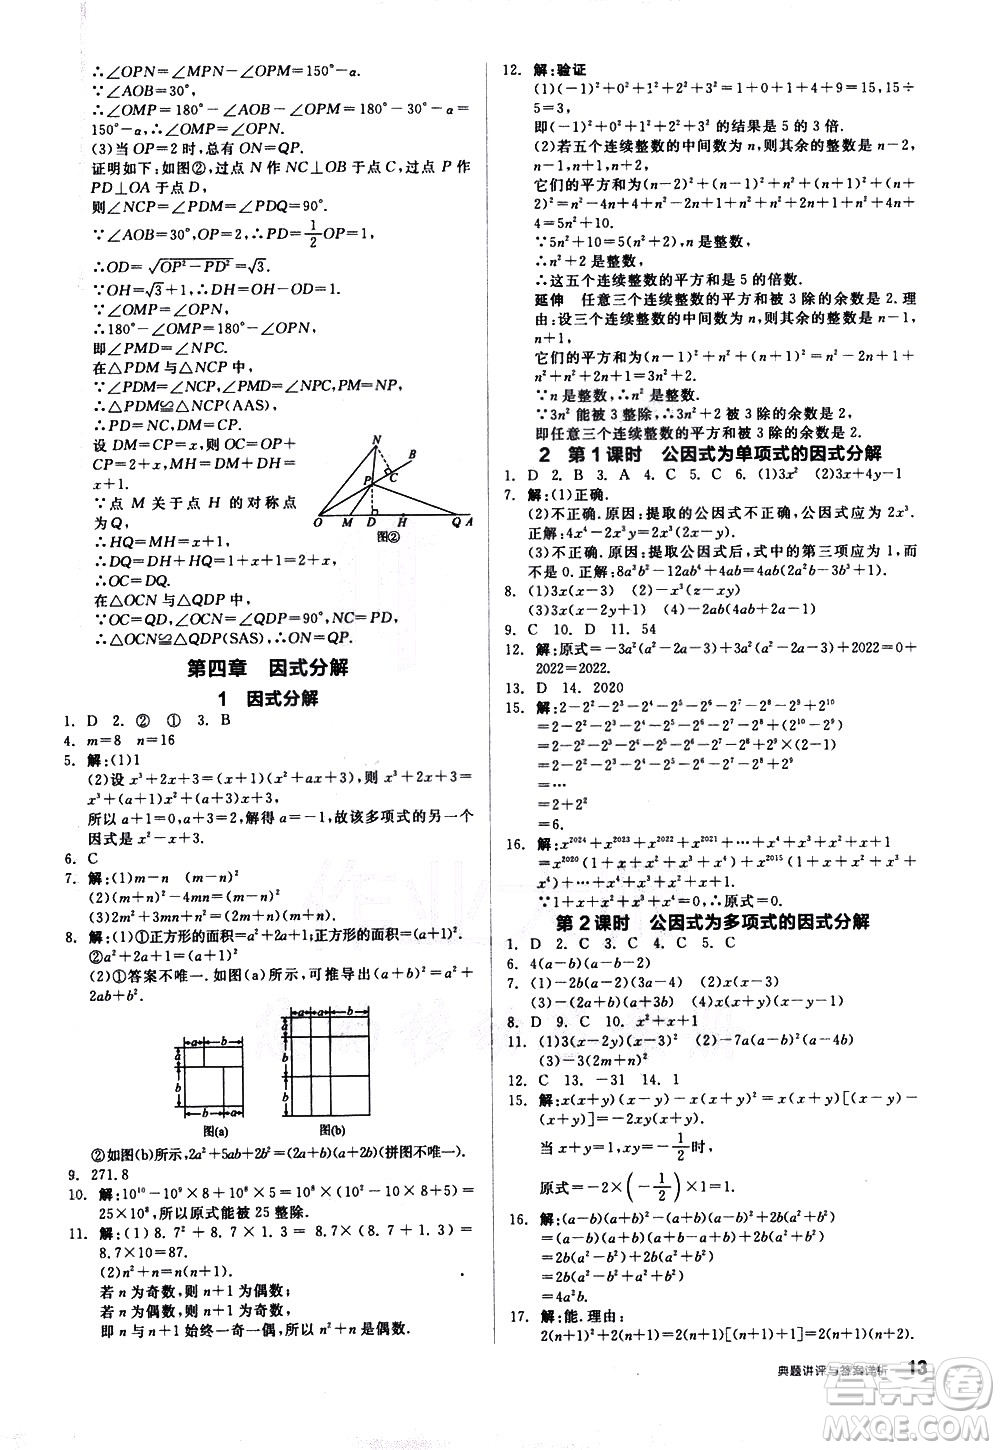 ∴∠OPN=∠MPN-∠OPM=150°-α.
∵∠AOB=30°,
∴∠OMP=180°-∠AOB-∠OPM=180°-30°-α=
150°-α,∴∠OMP=∠OPN.
(3)当 OP=2 时,总有 ON=QP.
证明如下:如图②,过点 N 作 NC⊥OB 于点 C,过点 P 作
PD⊥OA 于点 D,
则∠NCP=∠PDM=∠PDQ=90°.
∵∠AOB=30°,OP=2,∴PD=1/2 OP=1,
∴OD=√(OP²-PD²)=√3.
∵OH=√3+1,∴DH=OH-OD=1.
∵∠OMP=∠OPN,
∴180°-∠OMP=180°-∠OPN,
即∠PMD=∠NPC.
在△PDM 与△NCP 中,
∵∠PDM=∠NCP,∠PMD=∠NPC,PM=NP,
∴△PDM≌△NCP(AAS),
∴PD=NC,DM=CP.
设 DM=CP=x,则 OC=OP+
PC=2+x,MH=MD+DH=
x+1.
∵点 M 关于点 H 的对称点
为 Q,
∴HQ=MH=x+1,
∴DQ=DH+HQ=1+x+1=2+x,
∴OC=DQ.
在△OCN 与△QDP 中,
∵OC=QD,∠OCN=∠QDP=90°,NC=PD,
∴△OCN≌△QDP(SAS),∴ON=QP.
N B P C O M D H Q A
图②
第四章 因式分解
1 因式分解
1. D 2. ② ① 3. B
4. m=8 n=16
5. 解:(1)1
(2)设 x³+2x+3=(x+1)(x²+ax+3),则 x³+2x+3=
x³+(a+1)x²+(a+3)x+3,
所以 a+1=0,a+3=2,解得 a=-1,故该多项式的另一个
因式是 x²-x+3.
6. C
7. 解:(1)m-n (m-n)²
(2)(m+n)²-4mn=(m-n)²
(3)2m²+3mn+n²=(2m+n)(m+n)
8. 解:(1)①正方形的面积=a²+2a+1;正方形的面积=(a+1)².
②a²+2a+1=(a+1)²
(2)①答案不唯一.如图(a)所示,可推导出(a+b)²=a²+
2ab+b².
a b a b b a 图(a)
a a b a b b 图(b)
②如图(b)所示,2a²+5ab+2b²=(2a+b)(a+2b)(拼图不唯一).
9. 271.8
10. 解:10¹⁰-10⁹×8+10⁸×5=10⁸×(10²-10×8+5)=
25×10⁸,所以原式能被 25 整除.
11. 解:(1) 8.7²+8.7×1.3=8.7×(8.7+1.3)=
8.7×10=87.
(2)n²+n=n(n+1).
若 n 为奇数,则 n+1 为偶数;
若 n 为偶数,则 n+1 为奇数,
即 n 与 n+1 始终一奇一偶,所以 n²+n 是偶数.
12. 解:验证
(1)(-1)²+0²+1²+2²+3²=1+0+1+4+9=15,15÷
5=3,
即(-1)²+0²+1²+2²+3² 的结果是 5 的 3 倍.
(2)若五个连续整数的中间数为 n,则其余四个整数是 n-2,
n-1,n+1,n+2,
它们的平方和为(n-2)²+(n-1)²+n²+(n+1)²+(n+
2)²=n²-4n+4+n²-2n+1+n²+n²+2n+1+n²+4n+
4=5n²+10.
∵5n²+10=5(n²+2),n 是整数,
∴n²+2 是整数,
∴这五个连续整数的平方和是 5 的倍数.
延伸 任意三个连续整数的平方和被 3 除的余数是 2.理
由:设三个连续整数的中间数为 n,则其余两个整数是 n-1,
n+1,
它们的平方和为(n-1)²+n²+(n+1)²=n²-2n+1+
n²+n²+2n+1=3n²+2.
∵n 是整数,∴n² 是整数,
∵3n² 能被 3 整除,∴3n²+2 被 3 除的余数是 2,
即任意三个连续整数的平方和被 3 除的余数是 2.
2 第 1 课时 公因式为单项式的因式分解
1. D 2. B 3. A 4. C 5. C 6. (1)3x² (2)3x+4y-1
7. 解:(1)正确.
(2)不正确.原因:提取的公因式不正确,公因式应为 2x³.
正解:4x⁴-2x³y=2x³(2x-y).
(3)不正确.原因:提取公因式后,式中的第三项应为 1,而
不是 0.正解:8a³b²-12ab⁴+4ab=4ab(2a²b-3b³+1).
8. (1)3x(x-3) (2)-x³(z-xy)
(3)3x(x-2y+1) (4)-2ab(4ab-a²+1)
9. C 10. D 11. 54
12. 解:原式=-3a²(2a²-a-1)+2022=-3a²×0+
2022=2022.
13. D 14. 2020
15. 解:2-2²-2³-2⁴-2⁵-2⁶-2⁷-2⁸-2⁹+2¹⁰
=2-2²-2³-2⁴-2⁵-2⁶-2⁷-2⁸+2⁹×(2-1)
=2-2²-2³-2⁴-2⁵-2⁶-2⁷-2⁸+2⁹
=…
=2+2²
=6.
16. 解:x²⁰²⁴+x²⁰²³+x²⁰²²+x²⁰²¹+…+x⁴+x³+x²+x+1
=x²⁰²⁰(1+x+x²+x³+x⁴)+x²⁰¹⁵(1+x+x²+x³+
x⁴)+…+(1+x+x²+x³+x⁴).
∵1+x+x²+x³+x⁴=0,∴原式=0.
第 2 课时 公因式为多项式的因式分解
1. D 2. C 3. C 4. C 5. C
6. 4(a-b)(a-b-2)
7. (1)-2b(a-2b)(3a-4) (2)x(x-3)
(3)-(2a+b)(a+3b) (4)x(x+y)(x-y)
8. D 9. C 10. x²+x+1
11. (1)3(x-2y)(x-3)² (2)-7a(a-2b)(a-4b)
(3)-3(2m+n)²
12. C 13. -31 14. 1
15. 解:x(x+y)(x-y)-x(x+y)²=x(x+y)[(x-y)-
(x+y)]=-2xy(x+y).
当 x+y=1,xy=-1/2时,
原式=-2×(-1/2)×1=1.
16. 解:(a-b)(a+b)²-(a+b)(a-b)²+2b(a²+b²)
=(a-b)(a+b)(a+b-a+b)+2b(a²+b²)
=2b(a-b)(a+b)+2b(a²+b²)
=2b(a²-b²)+2b(a²+b²)
=2b(a²-b²+a²+b²)
=4a²b.
17. 解:能.理由:
2(n+1)²+2(n+1)=2(n+1)[(n+1)+1]=2(n+1)(n+2).
典题讲评与答案详析 13
答案圈
MXQE.COM